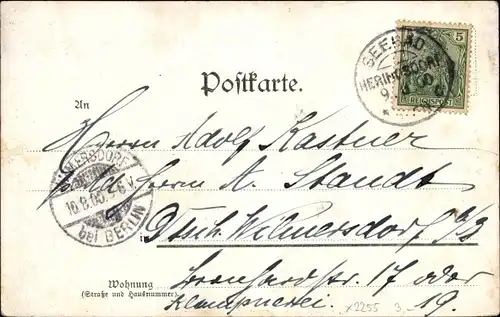 5
SEEBAD
HERINGSDORF
9.
REICHSPOST
Postkarte.
An
Herrn Adolf Kastner
WILMERSDORF
bei BERLIN
10.8.00. 5-6 V.
Herrn A. Standt
in Dtsch. Wilmersdorf b/B
Wohnung
(Straße und Hausnummer)
17 oder
Klempnerei. 19.
x2255 3,-